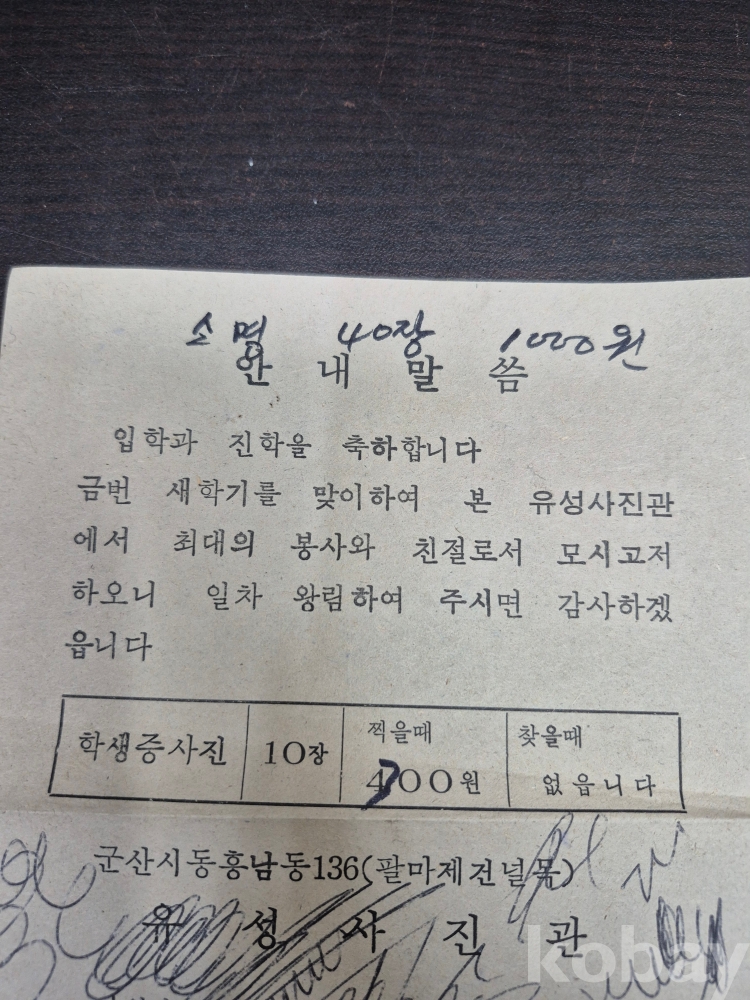 소명 40장 1000원
안내말씀
입학과 진학을 축하합니다
금번 새학기를 맞이하여 본 유성사진관
에서 최대의 봉사와 친절로서 모시고저
하오니 일차 왕림하여 주시면 감사하겠
읍니다
학생증사진 10장 찍을때 찾을때
00원 없읍니다
군산시동흥남동136(팔마제건널목)
유성사진관
kobay